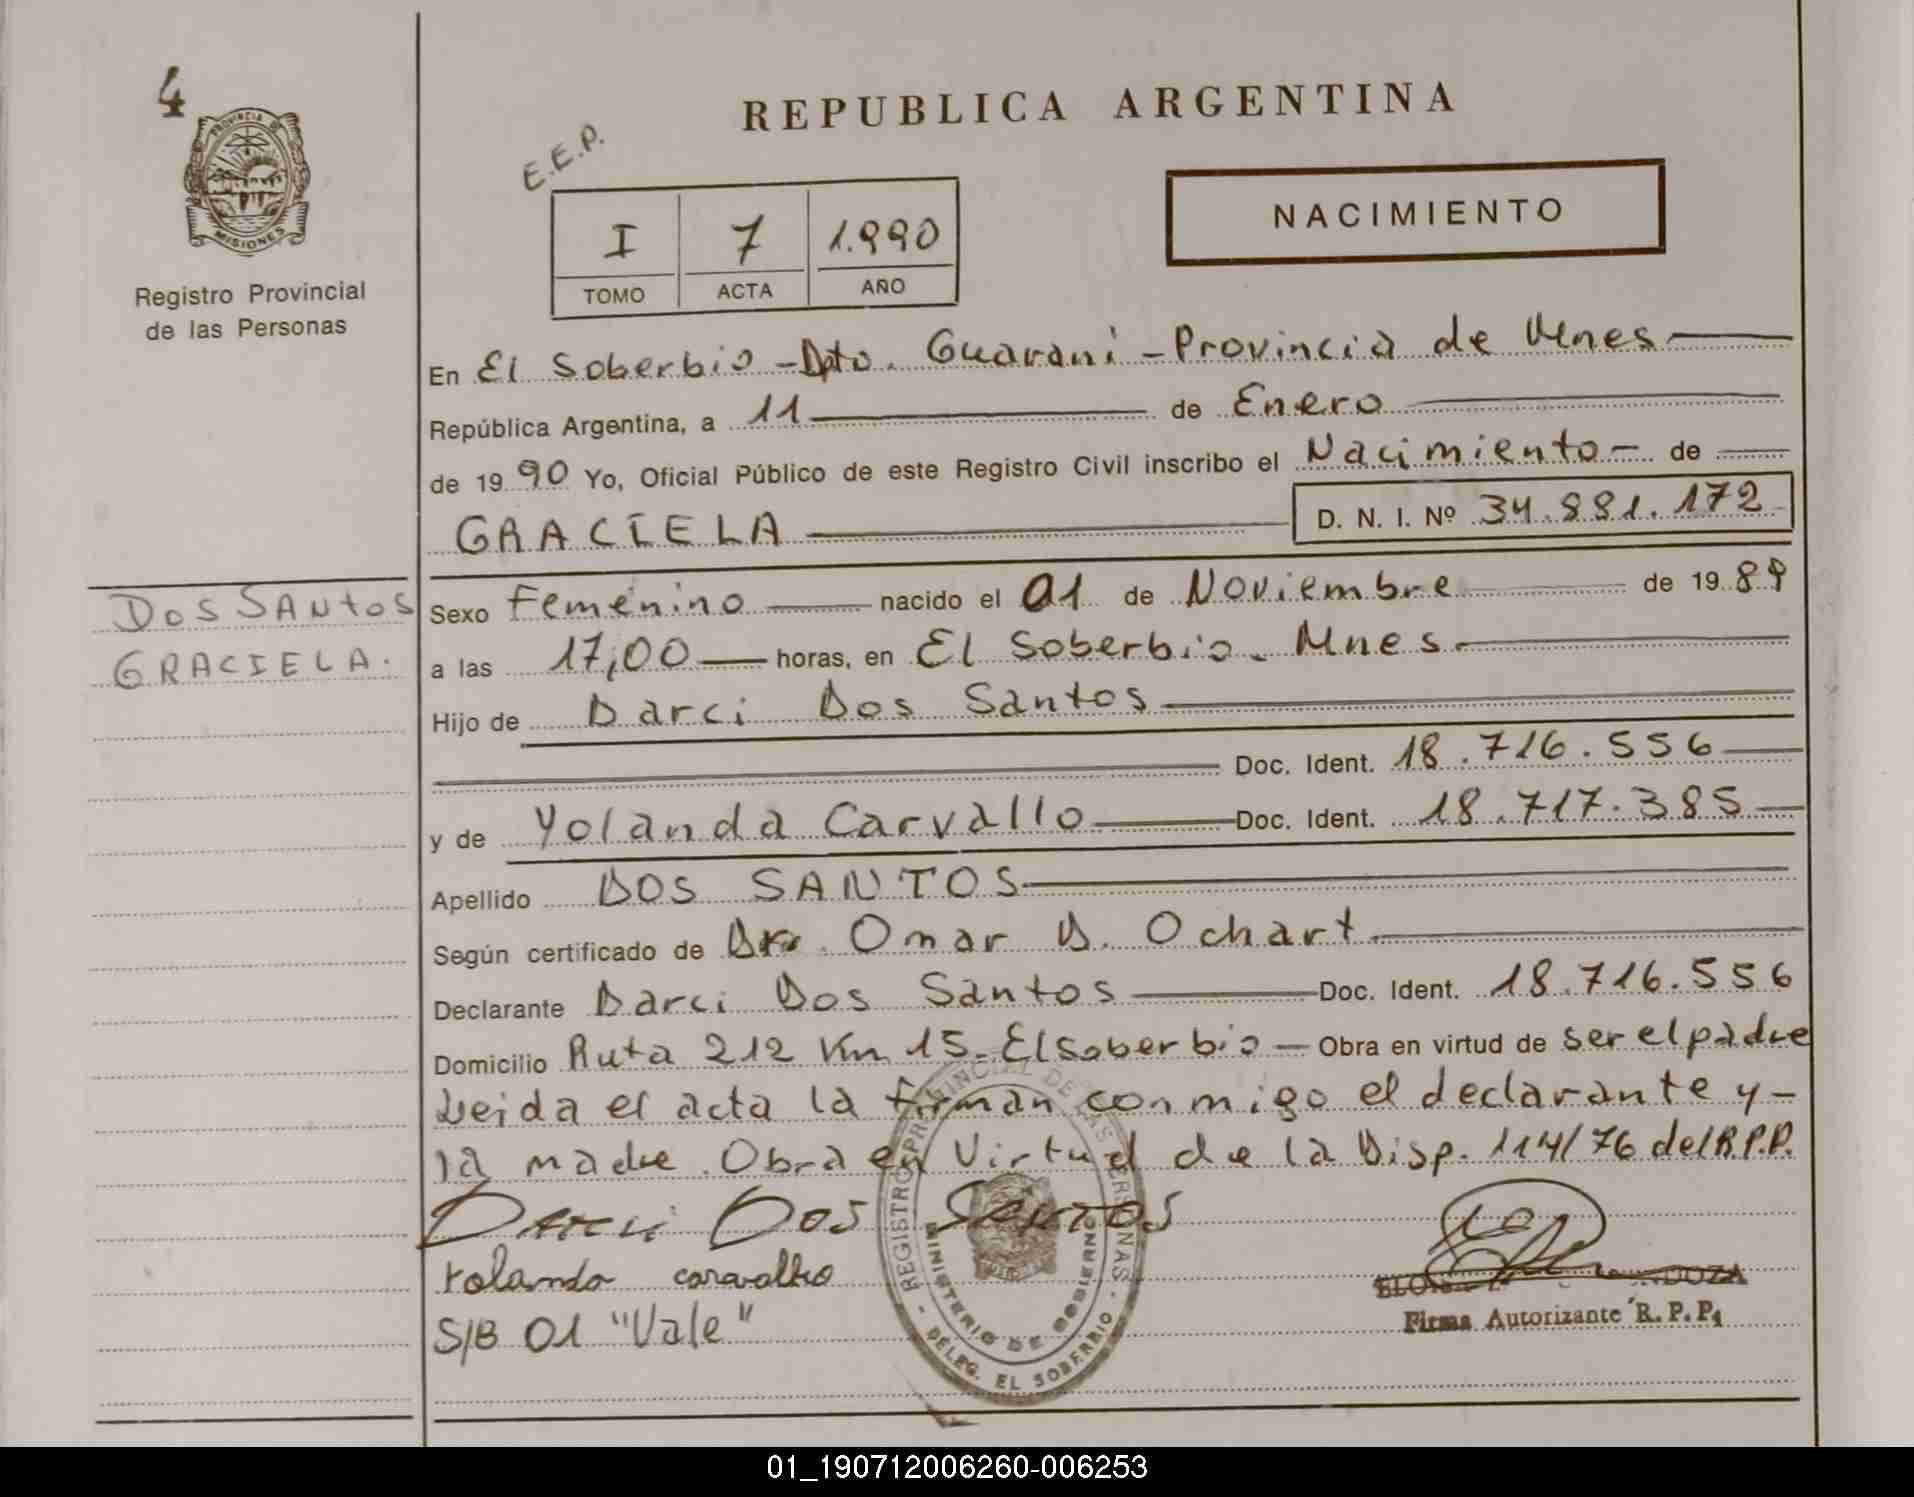 4
PROVINCIA DE
MISIONES
Registro Provincial
de las Personas
REPUBLICA ARGENTINA
E.E.P.
NACIMIENTO
I 7 1.990
TOMO ACTA AÑO
En El Soberbio - Dpto. Guarani - Provincia de Mnes
República Argentina, a 11 de Enero
de 1990 Yo, Oficial Público de este Registro Civil inscribo el Nacimiento - de
GRACIELA D. N. I. Nº 34.881.172
DOS SANtos
GRACIELA.
Sexo Femenino nacido el 01 de Noviembre de 1989
a las 17,00 horas, en El Soberbio - Mnes
Hijo de Darci Dos Santos
Doc. Ident. 18.716.556
y de Yolanda Carvallo Doc. Ident. 18.717.385
Apellido DOS SANTOS
Según certificado de Dr. Omar D. Ochart
Declarante Darci Dos Santos Doc. Ident. 18.716.556
Domicilio Ruta 212 Km 15 - El Soberbio - Obra en virtud de ser el padre
Leida el acta la firman conmigo el declarante y -
la madre. Obra en Virtud de la Disp. 114/76 del R.P.P.
Darci Dos Santos
Yolanda caravalho
S/B 01 "Vale"
REGISTRO PROVINCIAL DE LAS PERSONAS
MINISTERIO DE GOBIERNO
DELEG. EL SOBERBIO
Firma Autorizante R. P. P.
01_190712006260-006253